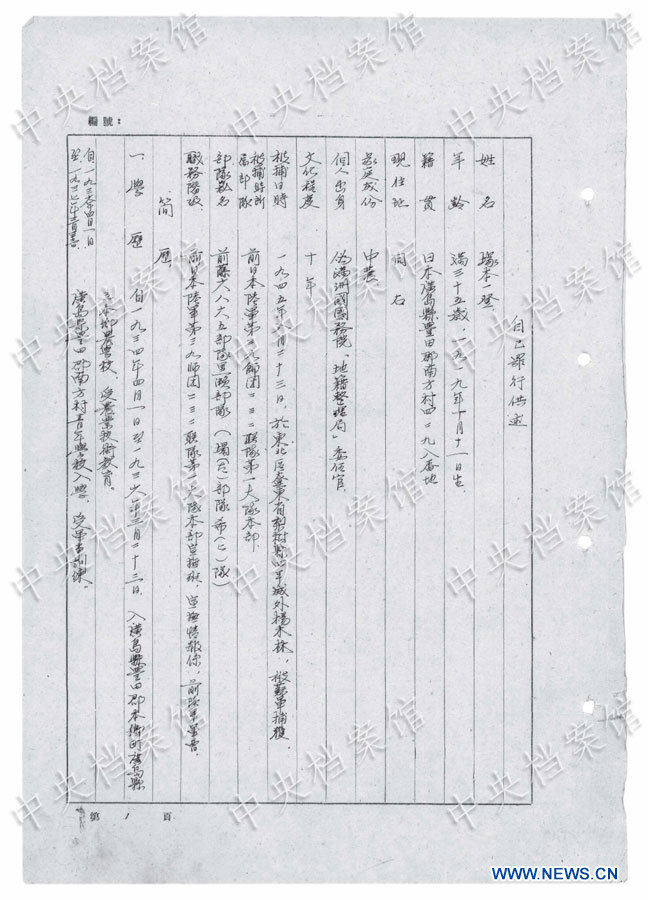 編號：
自己罪行供述
姓名 塚本一登
年齡 滿三十五歲，一九一九年十月十一日生
籍貫 日本廣島縣豐田郡南方村四二九八番地
現住地 同右
家庭成份 中農
個人出身 偽滿洲國國務院「地籍整理局」委任官
文化程度 十年
被捕日時 一九四五年八月二十三日，於東北區遼東省梨樹縣四平城外楊木林，被蘇軍捕獲。
被捕時所屬部隊 前日本陸軍第三九師團二三二聯隊第一大隊本部
部隊 前藤六八六五部隊
職務階級 前日本陸軍第三九師團二三二聯隊第一大隊本部
簡歷
一、學歷 自一九三四年四月一日至一九三六年三月二十三日，入廣島縣豐田郡本鄉町廣島縣
立本鄉農學校，受農業技術教育。
自一九三六年四月一日
廣島縣豐田郡南方村青年學校入學，受軍事訓練。
第1頁
中央档案馆
WWW.NEWS.CN